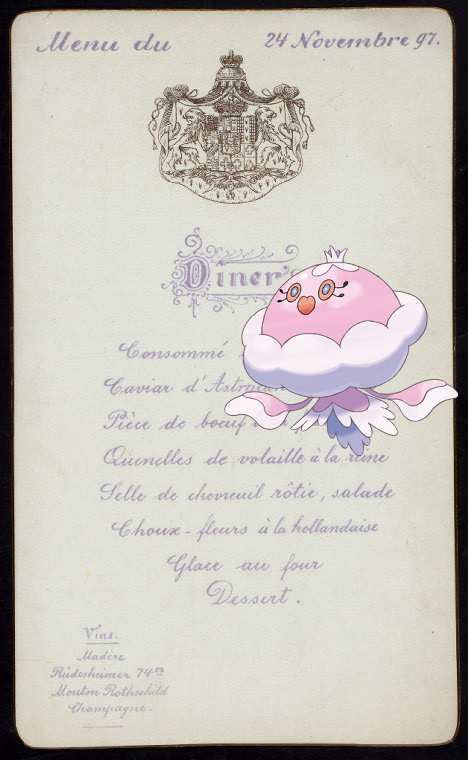 Menu du 24 Novembre 97.
Diner
Consommé
Caviar d'Astracan
Pièce de boeuf
Quenelles de volaille à la reine
Selle de chevreuil rôtie, salade
Choux-fleurs à la hollandaise
Glace au four
Dessert.
Vins.
Madère
Rüdesheimer 74er
Mouton Rothschild
Champagne.